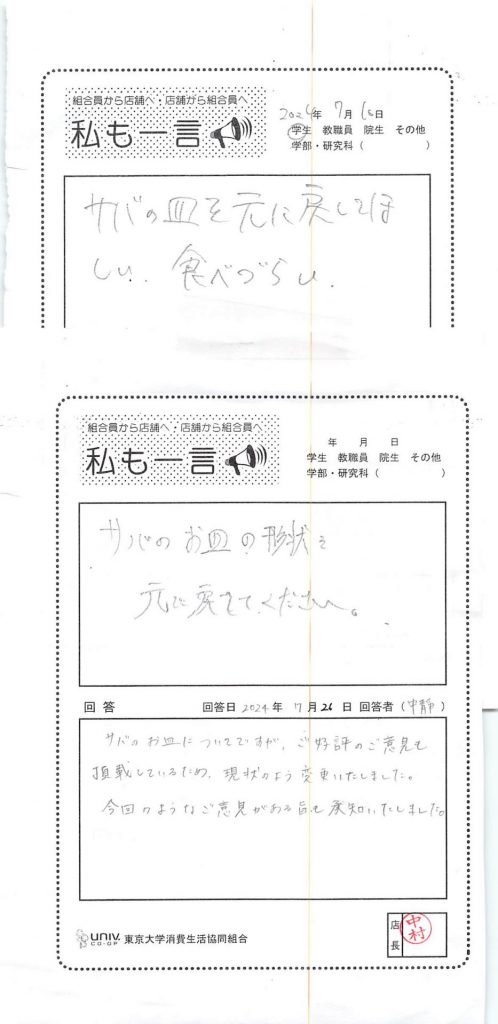 組合員から店舗へ・店舗から組合員へ
私も一言
2024年 7月 10日
学生 教職員 院生 その他
学部・研究科（ ）
サバの皿を元に戻してほ
しい、食べづらい、
組合員から店舗へ・店舗から組合員へ
私も一言
年 月 日
学生 教職員 院生 その他
学部・研究科（ ）
サバのお皿の形状を
元に戻してください。
回答 回答日 2024年 7月 26日 回答者（中静）
サバのお皿についてですが、ご好評のご意見も
頂戴しているため、現状のよう変更いたしました。
今回のようなご意見がある旨も承知いたしました。
univ. CO-OP 東京大学消費生活協同組合
店長 中村